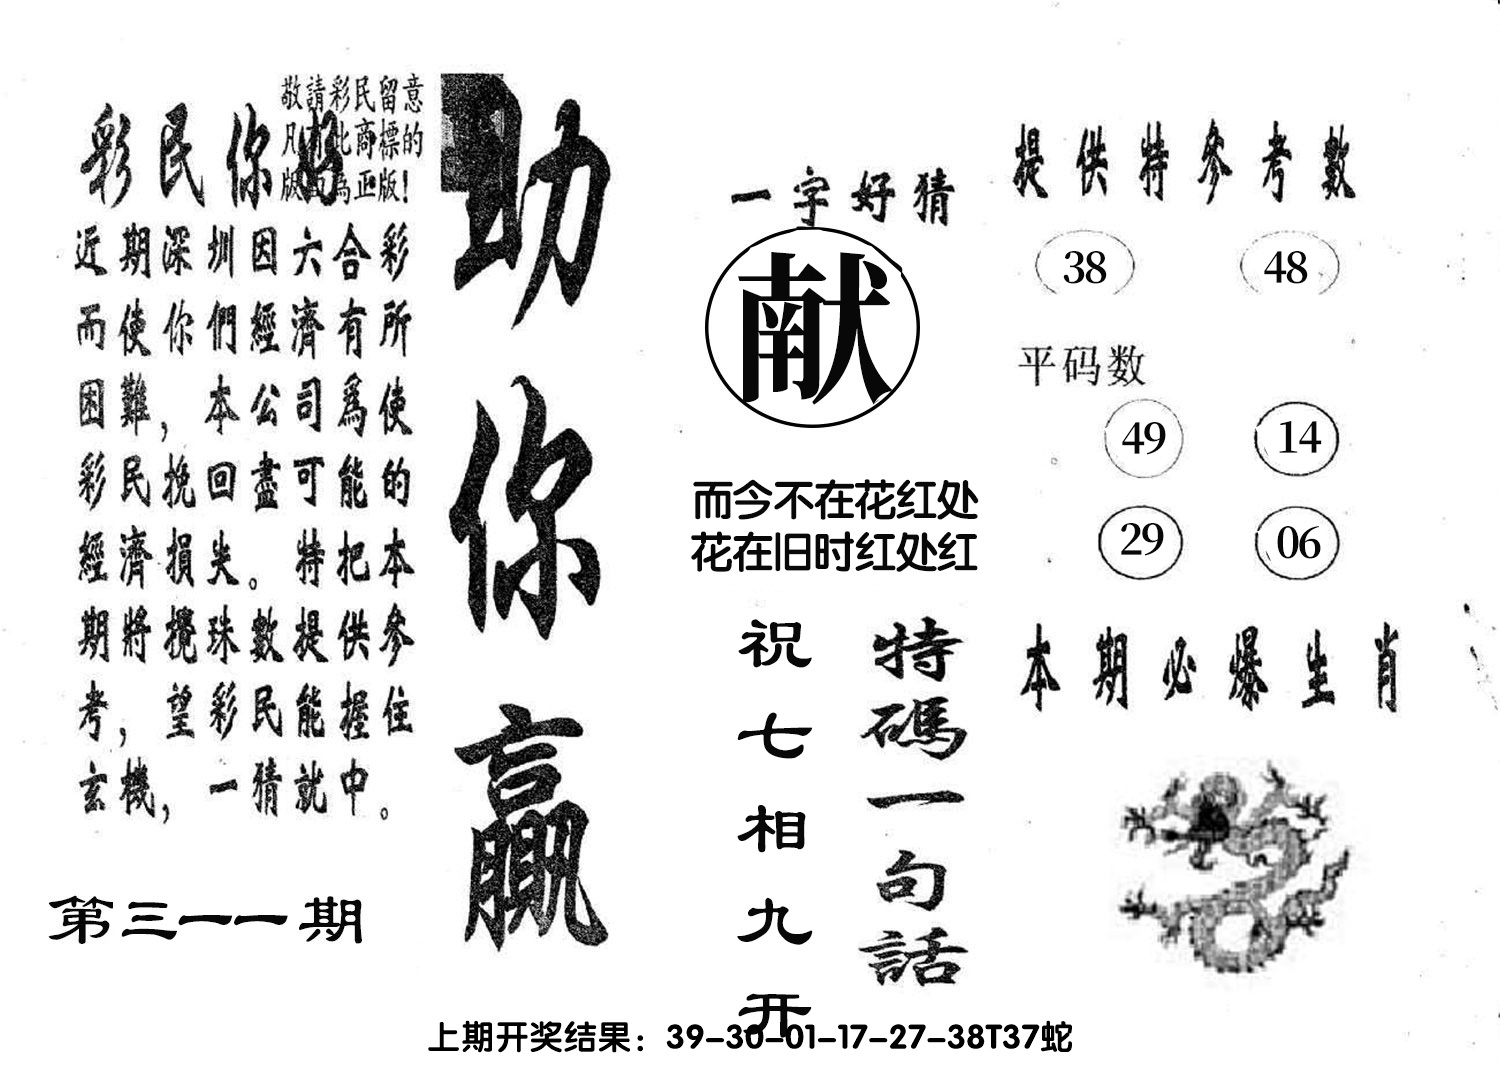 敬請彩民留意
凡有此商標的
版面為正版!
彩民你好
近期深圳因六合彩
而使你們經濟有所
困難，本公司爲使
彩民挽回盡可能的
經濟損失。特把本
期將攪珠數提供參
考，望彩民能握住
玄機，一猜就中。
第三一一期
助你贏
一字好猜
献
而今不在花红处
花在旧时红处红
特碼一句話
祝七相九开
提供特參考數
38 48
平码数
49 14
29 06
本期必爆生肖
上期开奖结果：39-30-01-17-27-38T37蛇